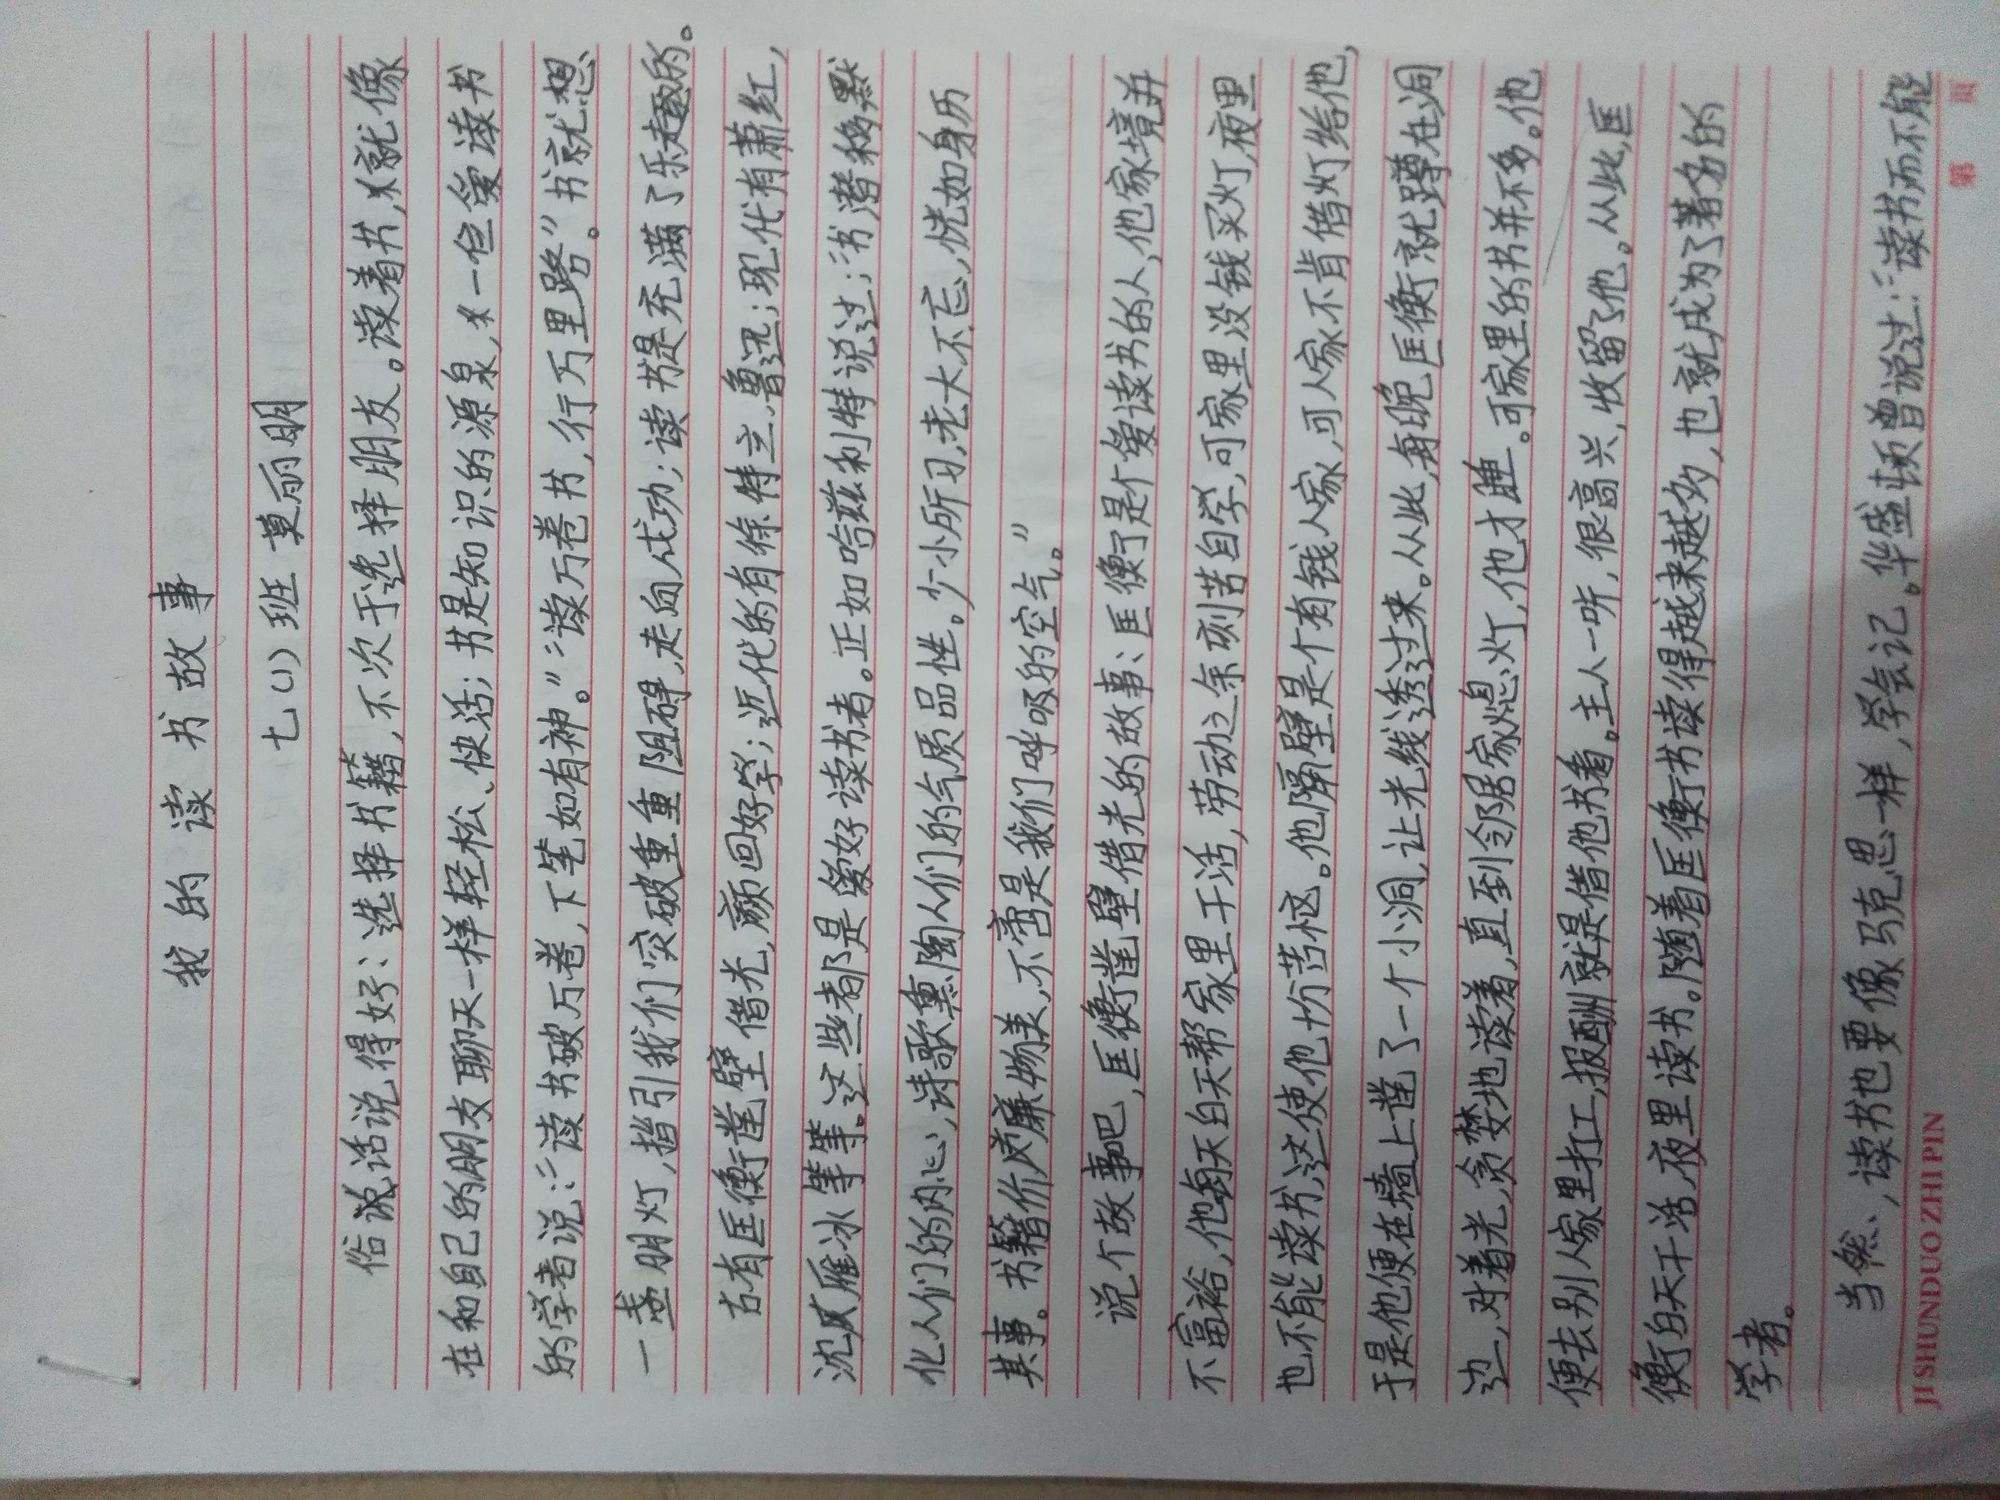 我的读书故事
七(1)班 莫丽明
俗说话说得好:选择书籍,不次于选择朋友。读着书,就像
在和自己的朋友聊天一样轻松、快活;书是知识的源泉,一位爱读书
的学者说:“读书破万卷,下笔如有神。”“读万卷书,行万里路。”书就想
一盏明灯,指引我们突破重重阻碍,走向成功;读书是充满了乐趣的。
古有匡衡凿壁借光,颜回好学;近代的有徐特立、鲁迅;现代有萧红,
沈雁冰等等。这些都是爱好读书者。正如哈兹利特说过:“书潜移默
化人们的内心,诗歌熏陶人们的气质品性。少小所习,老大不忘,恍如身历
其事。书籍价廉物美,不啻是我们呼吸的空气。”
说个故事吧,匡衡凿壁借光的故事:匡衡是个爱读书的人,他家境并
不富裕,他每天白天帮家里干活,劳动之余刻苦自学,可家里没钱买灯,夜里
也不能读书,这使他十分苦恼。他隔壁是个有钱人家,可人家不肯借灯给他,
于是他便在墙上凿了一个小洞,让光线透过来。从此,每晚匡衡就蹲在洞
边,对着光,贪婪地读着,直到邻居家熄灯,他才睡。可家里的书并不多。他
便去别人家里打工,报酬就是借他书看。主人一听,很高兴,收留了他。从此,匡
衡白天干活,夜里读书。随着匡衡书读得越来越多,也就成为了著名的
学者。
当然,读书也要像马克思一样,学会记。华盛顿曾说过:“读书而不能
JI SHUNDUO ZHI PIN
第 页